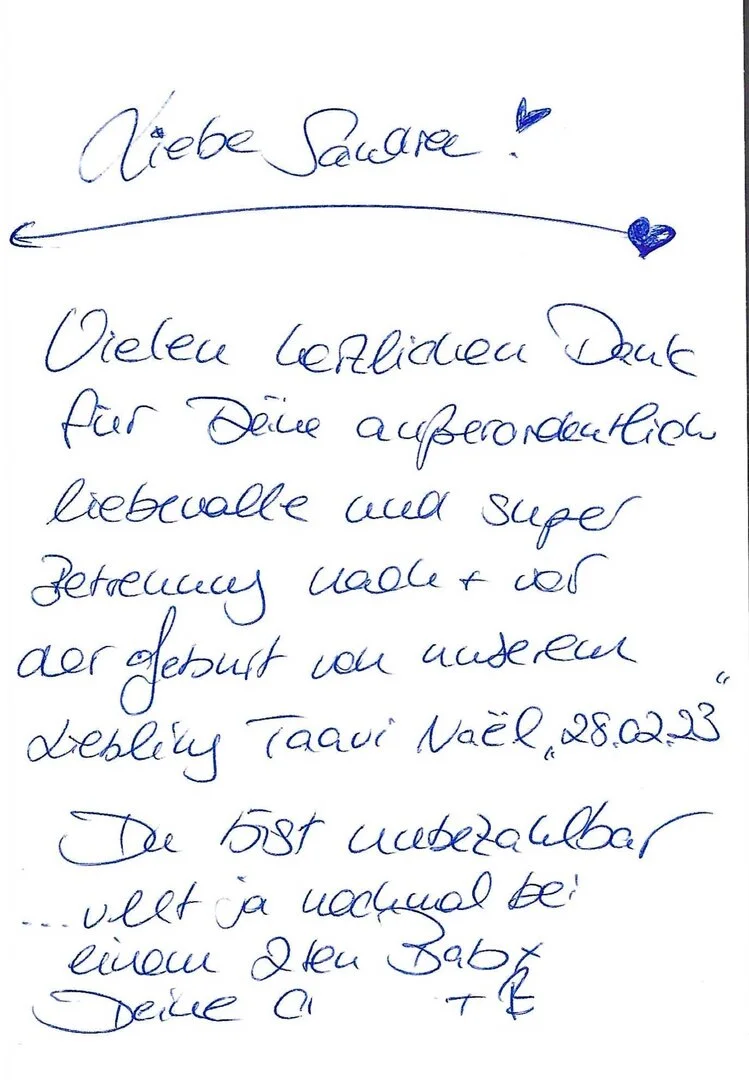 Liebe Sandra!
Vielen herzlichen Dank
für Deine außerordentlich
liebevolle und super
Betreuung nach + vor
der Geburt von unserem
Liebling Taavi Naël „28.02.23“
Du bist unbezahlbar
... vllt ja nochmal bei
einem 2ten Baby
Deine C + E